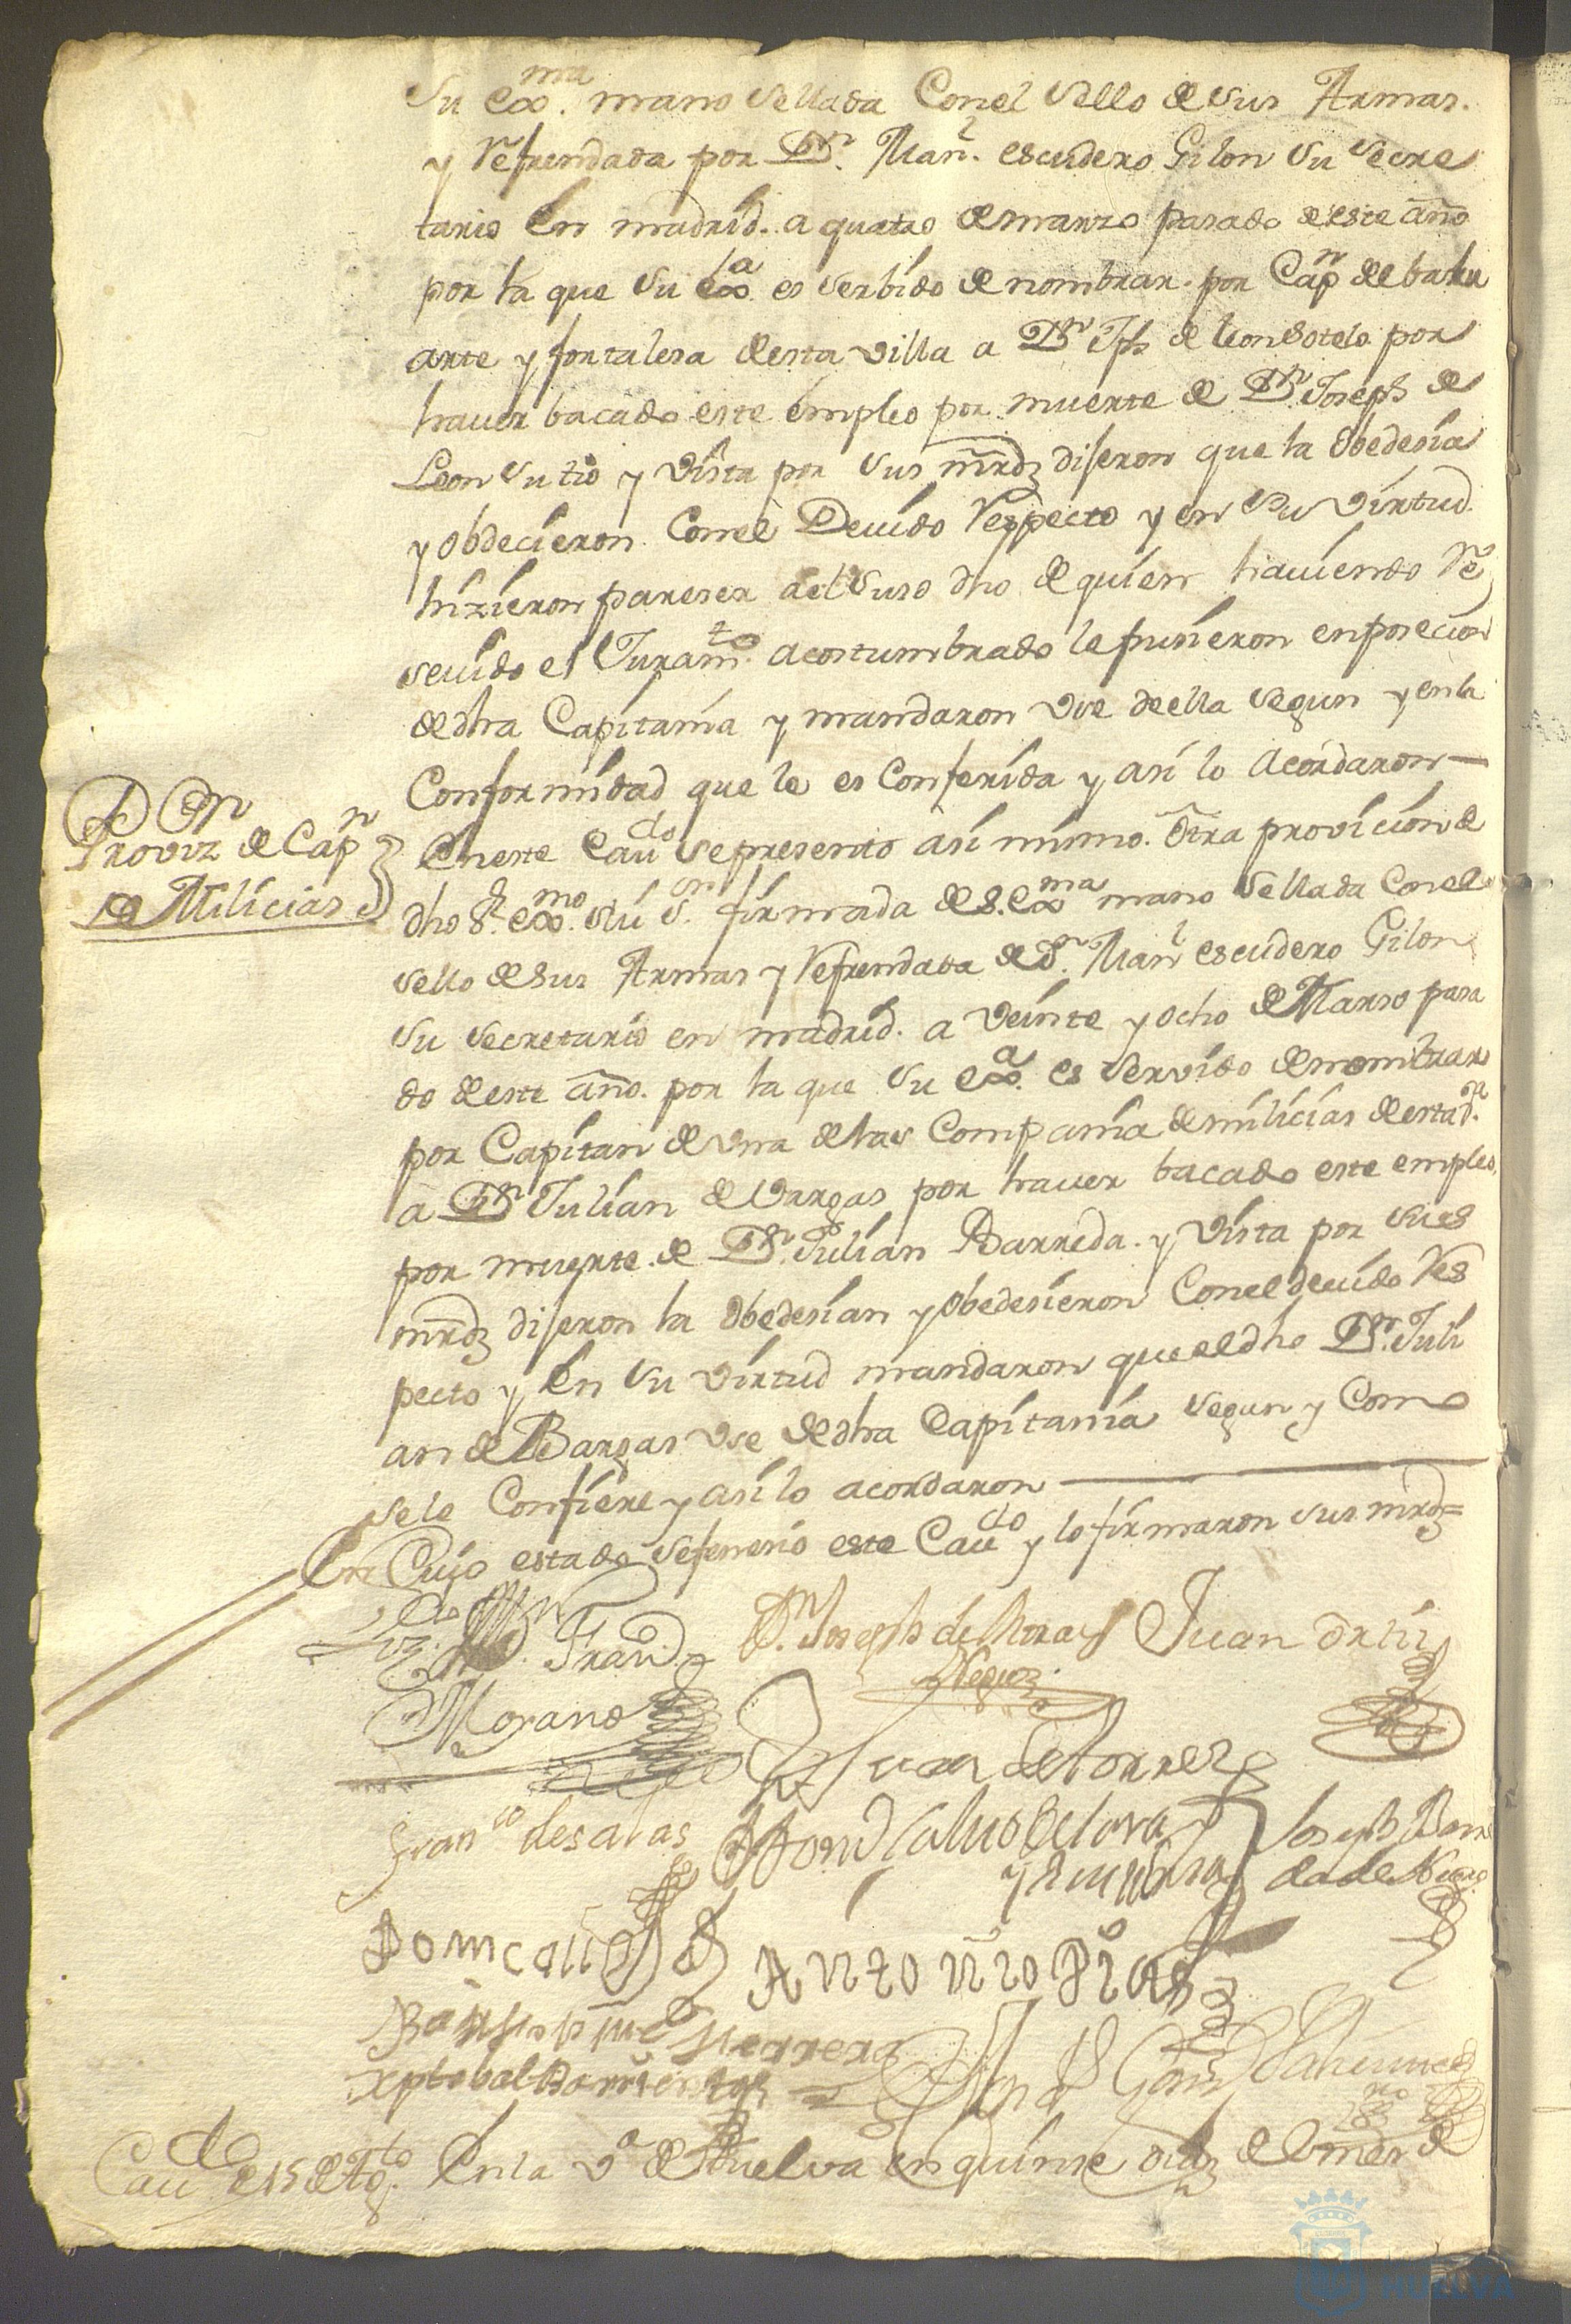 Su exma. mano Sellada Con el Sello de Sus Armas.
y Refrendada por Dn. Manl. escudero Gilon Su Secre
tario En madrid. a quatro de marzo pasado de este año
por la que Su exa. es Serbido de nombrar. por Capn de balu
arte y fortalesa desta villa a Dn Jph de leon sotelo por
haver bacado este empleo por muerte de Dn. Joseph de
Leon Su tio y Vista por Sus mrdz dijeron que la Obedesia
y Obdecieron Con el Devido Respecto y en Su Virtud.
hizieron pareser a el Suso dho de quien haviendo Re
sevido el Juramto. acostumbrado le pusieron en posecion
de dha Capitania y mandaron Use de ella Segun y en la
Conformidad que le es Conferida y asi lo acordaron
Provizn de Capn
de Milicias
En este Cavdo Se presento asi mismo. Otra provicion de
dho Sr. exmo. Sú Sr. firmada de S. exma mano Sellada Con el
Sello de Sus Armas y Refrendada de Dn. Manl escudero Gilon
Su Secretario en madrid. a Veinte y ocho de Marso pasa
do de este año. por la que Su exa. es Servido de nombrar
por Capitan de Una de las Compania de milicias de esta
a Dn Julian de Vargas por haver bacado este empleo,
por muerte. de Dn. Julian Barreda. y Vista por Sues
mrdz dijeron la Obedesian y Obedesieron Con el devido Res
pecto y En Su Virtud mandaron que el dho Dn. Juli
an de Bargas Use de dha Capitania Segun y Como
Se le Confiere y asi lo acordaron
En Cuio estado Se feneció este Cavdo y lo firmaron Sus mrdz=
Dn. Joseph de Juan Ortiz
Morano
Juan de torres
Franco de salas Joseph Barre
da de
Antonio
Herrera
xptobal
Cavdo de 15 de Agto. En la Va de Huelva en quinse dias de el mes de
HUELVA